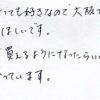 ても好きなので大阪で
ほしいです。
買えるようになったらいい
っています。